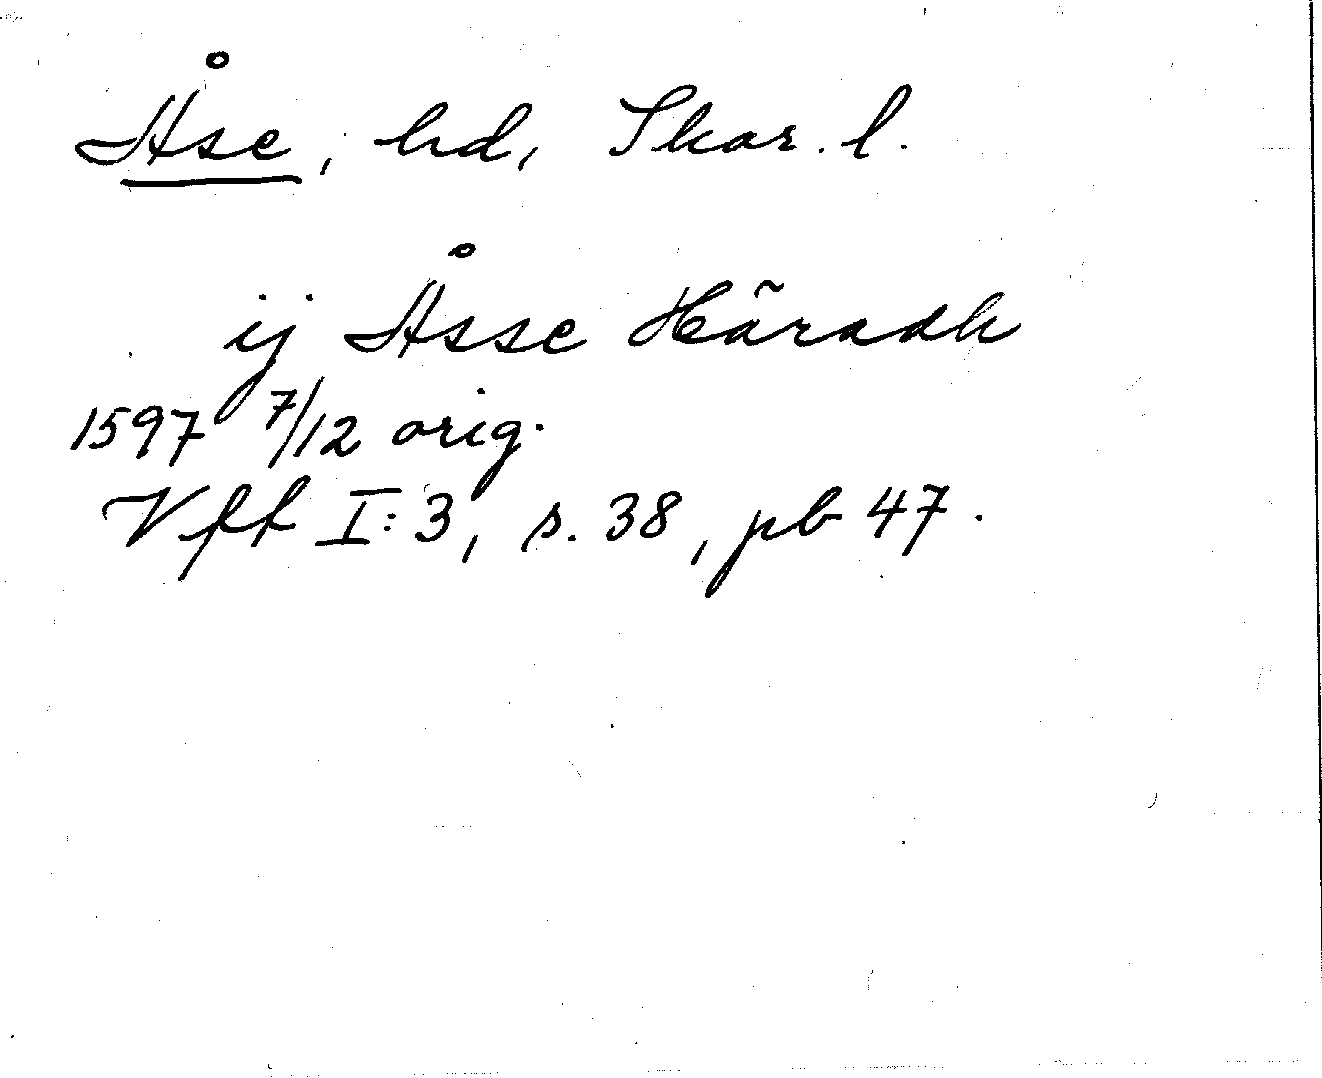 Åse, hd, Skar. l.
ij Åsse Häradh
1597 7/12 orig.
Vff I:3, s. 38, pb 47.